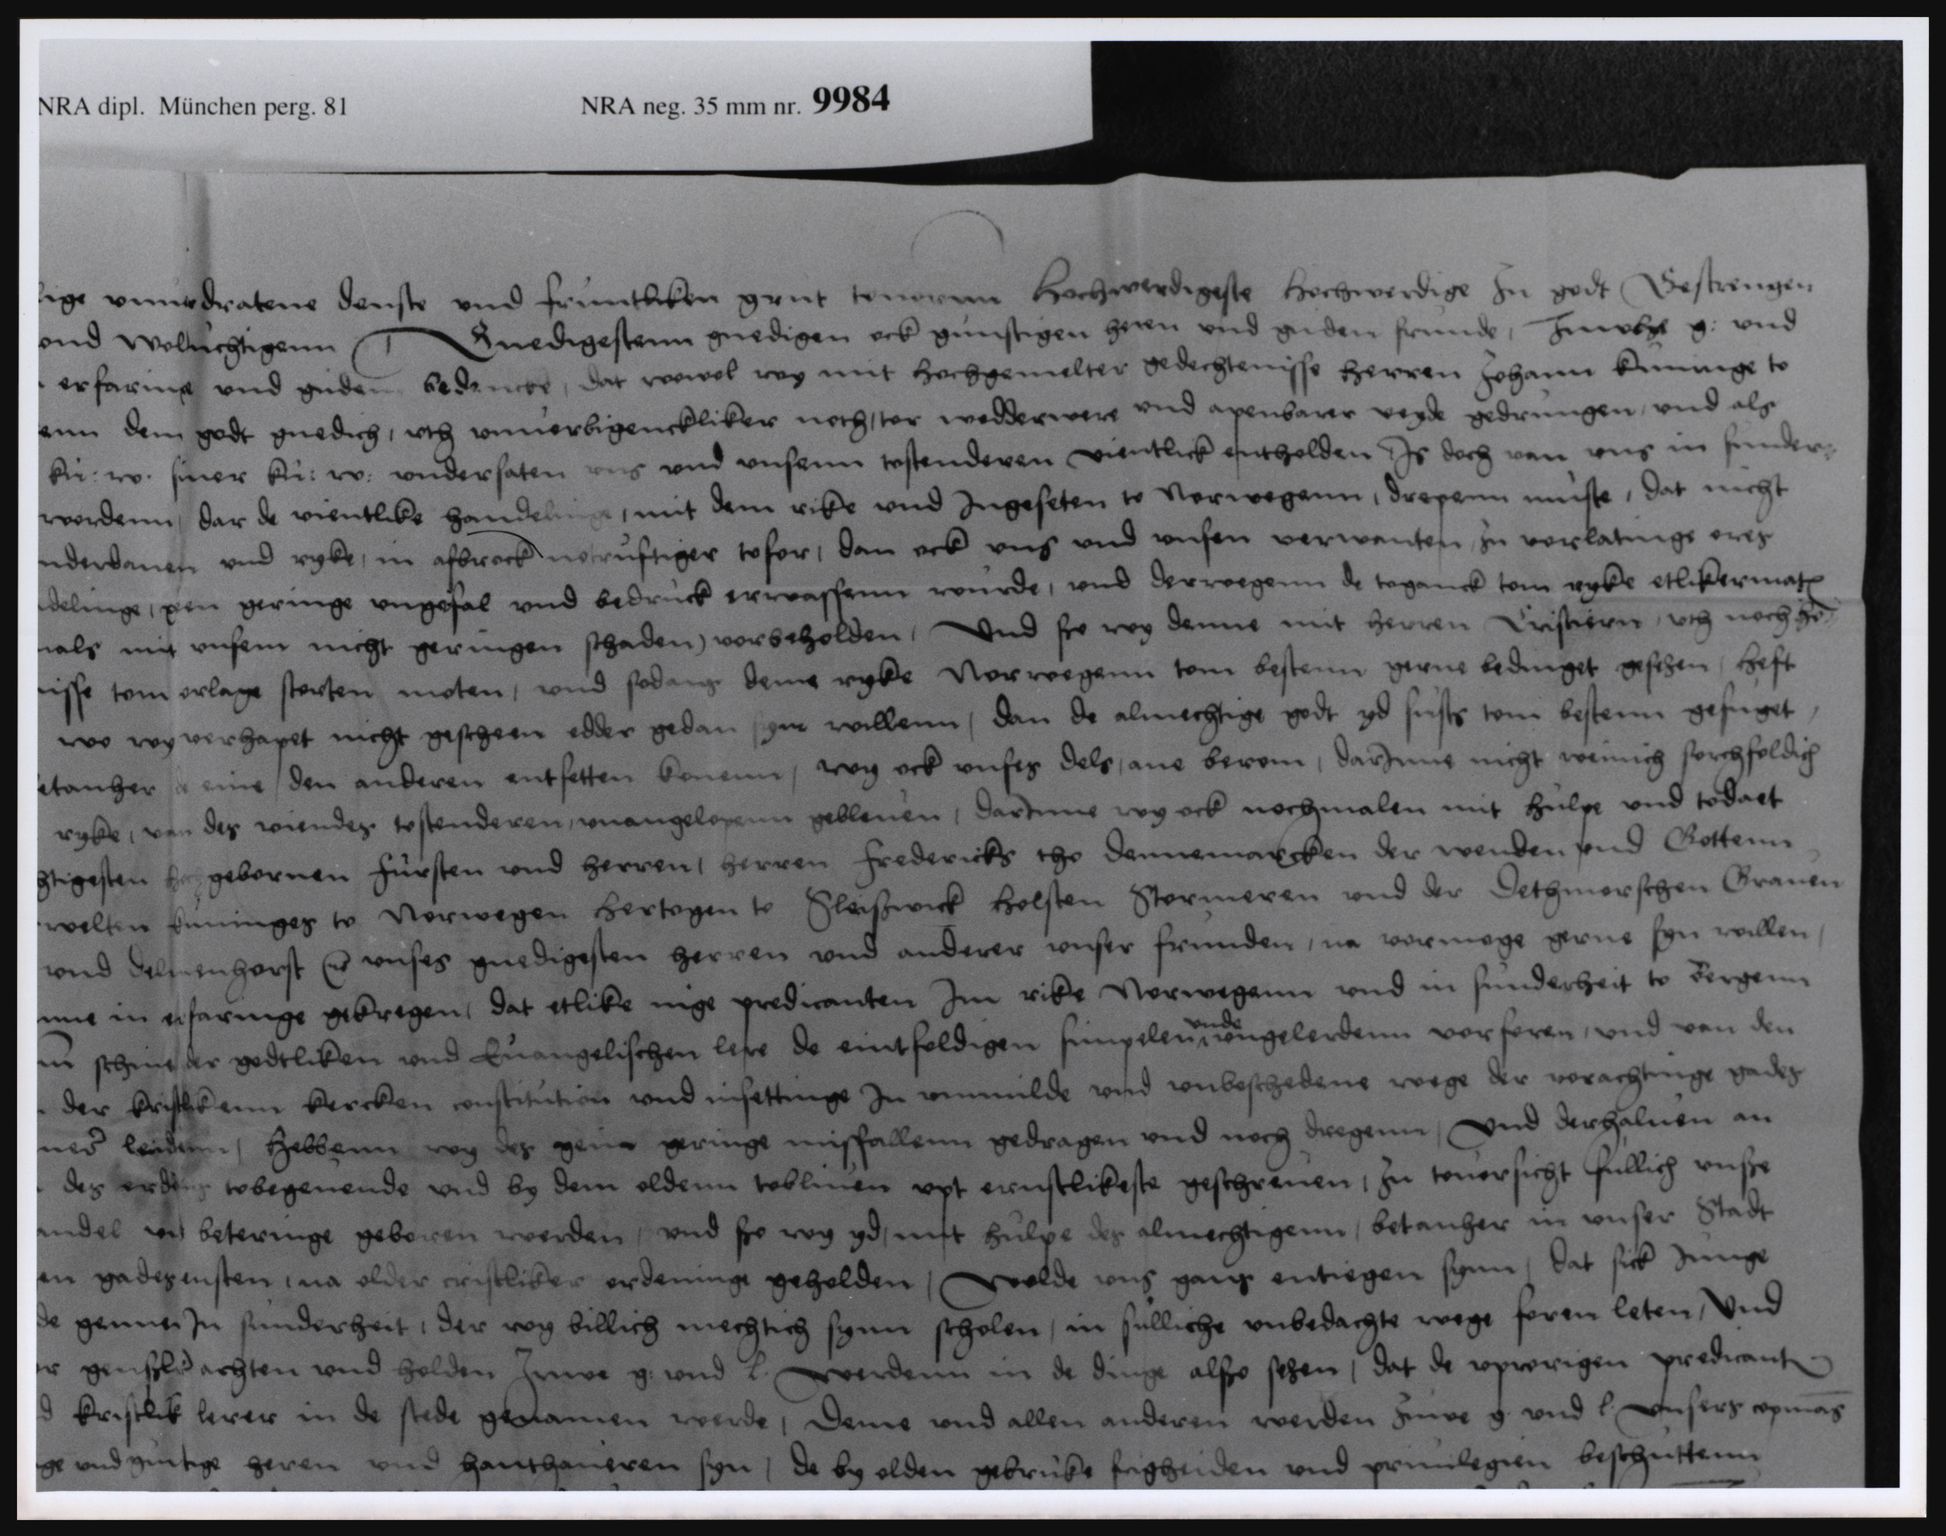 NRA dipl. München perg. 81 NRA neg. 35 mm nr. 9984
vnuordratene denste vnd fruntliken grut Hochwerdigeste Hochwerdige In godt Gestrengen
vnd Woltuchtigenn Gnedigestenn gnedigen ock gunstigen heren vnd guden frunde, g: vnd
erfaringe vnd guden bedencke, dat wowol wy mit hochgemelter gedechtenisse herren Johann kuninge to
dem godt gnedich, vth vnuorbigenckliker noth, tor wedderwere vnd apenbarer veyde gedrungen, vnd als
ku: w. siner ku: w: vndersaten vns vnd vnsenn tostenderen vientlick entholden Is doch van vns in sunder
wordenn, dar de vientlike handelinge, mit dem rike vnd Ingeseten to Norwegenn, drepenn muste, dat nicht
vnd ryke, in afbrock notruftiger tofor, dan ock vns vnd vnsen verwanten, In vorlatinge ores
gen geringe vngefal vnd bedruck erwassenn wurde, vnd derwegenn de toganck tom ryke etlikermate
mit vnsem nicht geringen schaden) vorbeholden, Vnd szo wy denne mit herren Cristiern, vth noch
tom orlage storten moten, vnd sodang deme ryke Norwegenn tom bestenn gerne bedinget gesehen, heft
wo wy verhapet nicht gescheen edder gedan syn willenn, dan de almechtige godt yd susts tom bestenn gefuget,
eine den anderen entsetten konenn, wy ock vnses dels, ane berom, darInne nicht weinich sorchfoldich
ryke, van des viendes tostenderen, vnangelopenn gebleuen, darInne wy ock nochmalen mit hulpe vnd todaet
gebornen Fursten vnd herren, herren Fredericks tho Dennemarcken der wenden vnd Gottenn
kuninges to Norwegen hertogen to Sleißwick Holsten Stormeren vnd der Dethmerschen Grauen
vnd Delmenhorst vnses gnedigesten herren vnd anderer vnser frunden, na vormoge gerne syn willen,
in erfaringe gekregen, dat etlike nige predicanten Im rike Norwegenn vnd in sunderheit to Bergenn
schine der godtliken vnd Euangelischen lere de eintfoldigen simpelen vnde vngelerdenn vorforen, vnd van den
der kristlikenn kercken constitution vnd insettinge In vnmilde vnd vnbeschedene wege der vorachtinge gades
leidenn, Hebbenn wy des geine geringe misfallenn gedragen vnd noch dregenn, Vnd derhaluen an
des tobegeuende vnd by dem oldenn tobliuen vpt ernstlikeste geschreuen, In touorsicht sullich vnsze
beteringe geboren werden, vnd szo wy yd, mit hulpe des almechtigenn, betanher in vnser Stadt
gadesensten, na older cristliker ordeninge geholden, Wolde vns gans entiegen synn, dat sick Junge
genne In sunderheit, der wy billich mechtich synn scholen, in sulliche vnbedachte wege foren leten, Vnd
achten vnd holden Juwe g: vnd l. werdenn in de dinge alszo sehen, dat de vprorigen predicant
kristlik lerer in de stede genamen werde, Deme vnd allen anderen werden Juwe g. vnd l. vnsers
vnd gunstige heren vnd hanthaueren syn, de by olden gebruke frigheiden vnd priuilegien beschuttenn